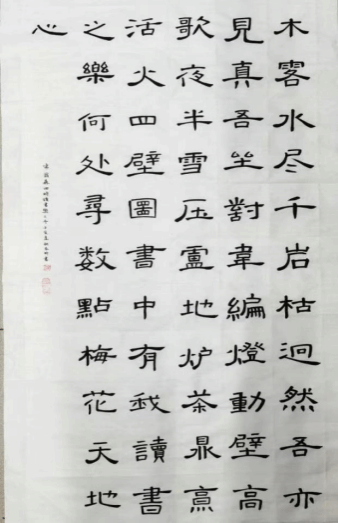 木落水尽千岩枯迥然吾亦
見真吾坐對韋編燈動壁高
歌夜半雪压廬地炉茶鼎烹
活火四壁圖書中有我讀書
之樂何处尋数點梅花天地
心